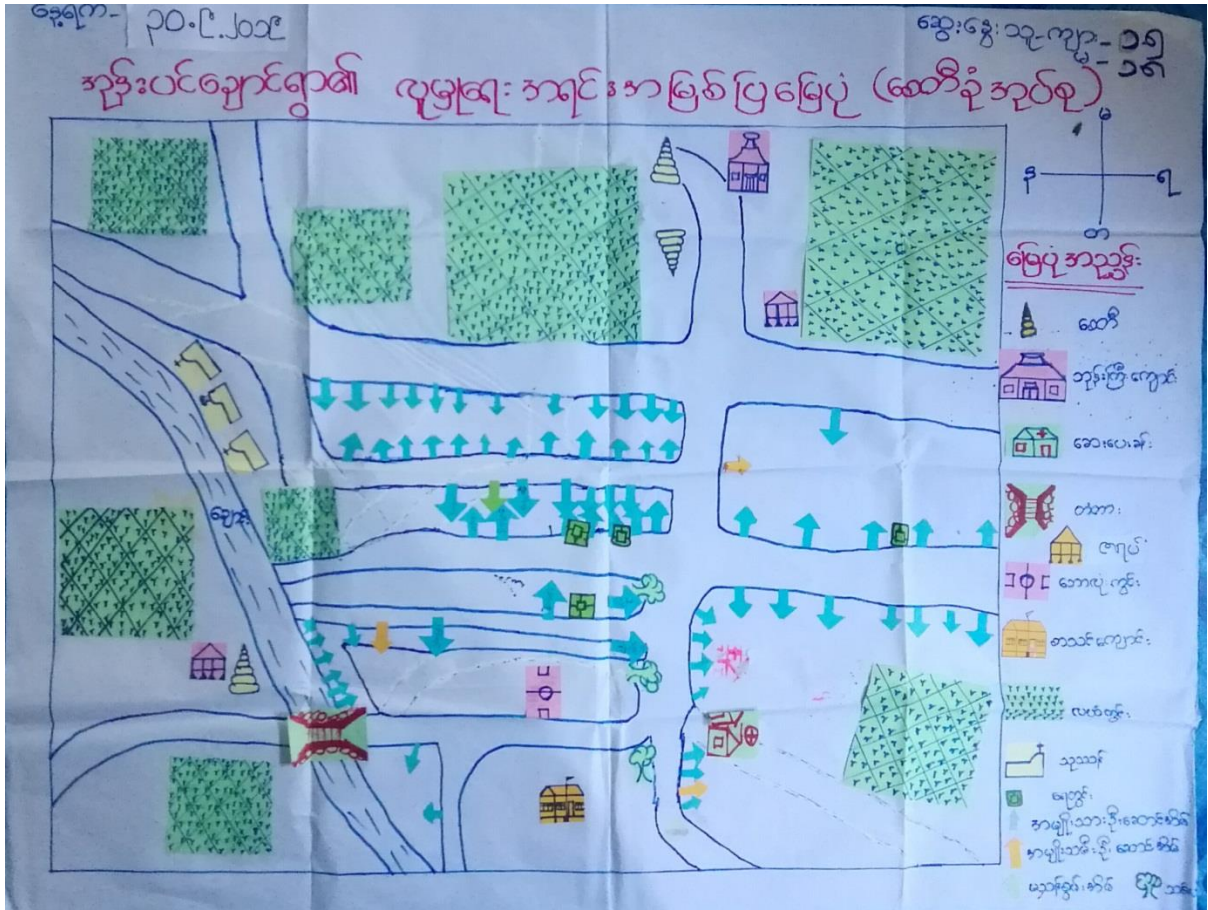 နေ့ရက်- ၃၀.၉.၂၀၁၉
ဆွေးနွေးသူ-ကျား-၁၅
မ-၁၅
အုန်းပင်ချောင်ရွာ၏ လူမှုရေးအရင်းအမြစ်ပြမြေပုံ (စေတီခုံအုပ်စု)
မ
န ရ
တ
မြေပုံအညွှန်း
စေတီ
ဘုန်းကြီးကျောင်း
ဆေးပေးခန်း
တံတား
ဇရပ်
ဘောလုံးကွင်း
စာသင်ကျောင်း
လယ်ကွင်း
သုသာန်
ရေတွင်း
အမျိုးသားဦးဆောင်အိမ်
အမျိုးသမီးဦးဆောင်အိမ်
မသန်စွမ်းအိမ်
ချောင်း